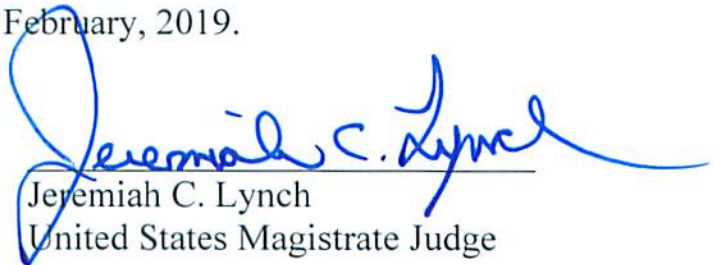 February, 2019.
Jeremiah C. Lynch
Jeremiah C. Lynch
United States Magistrate Judge